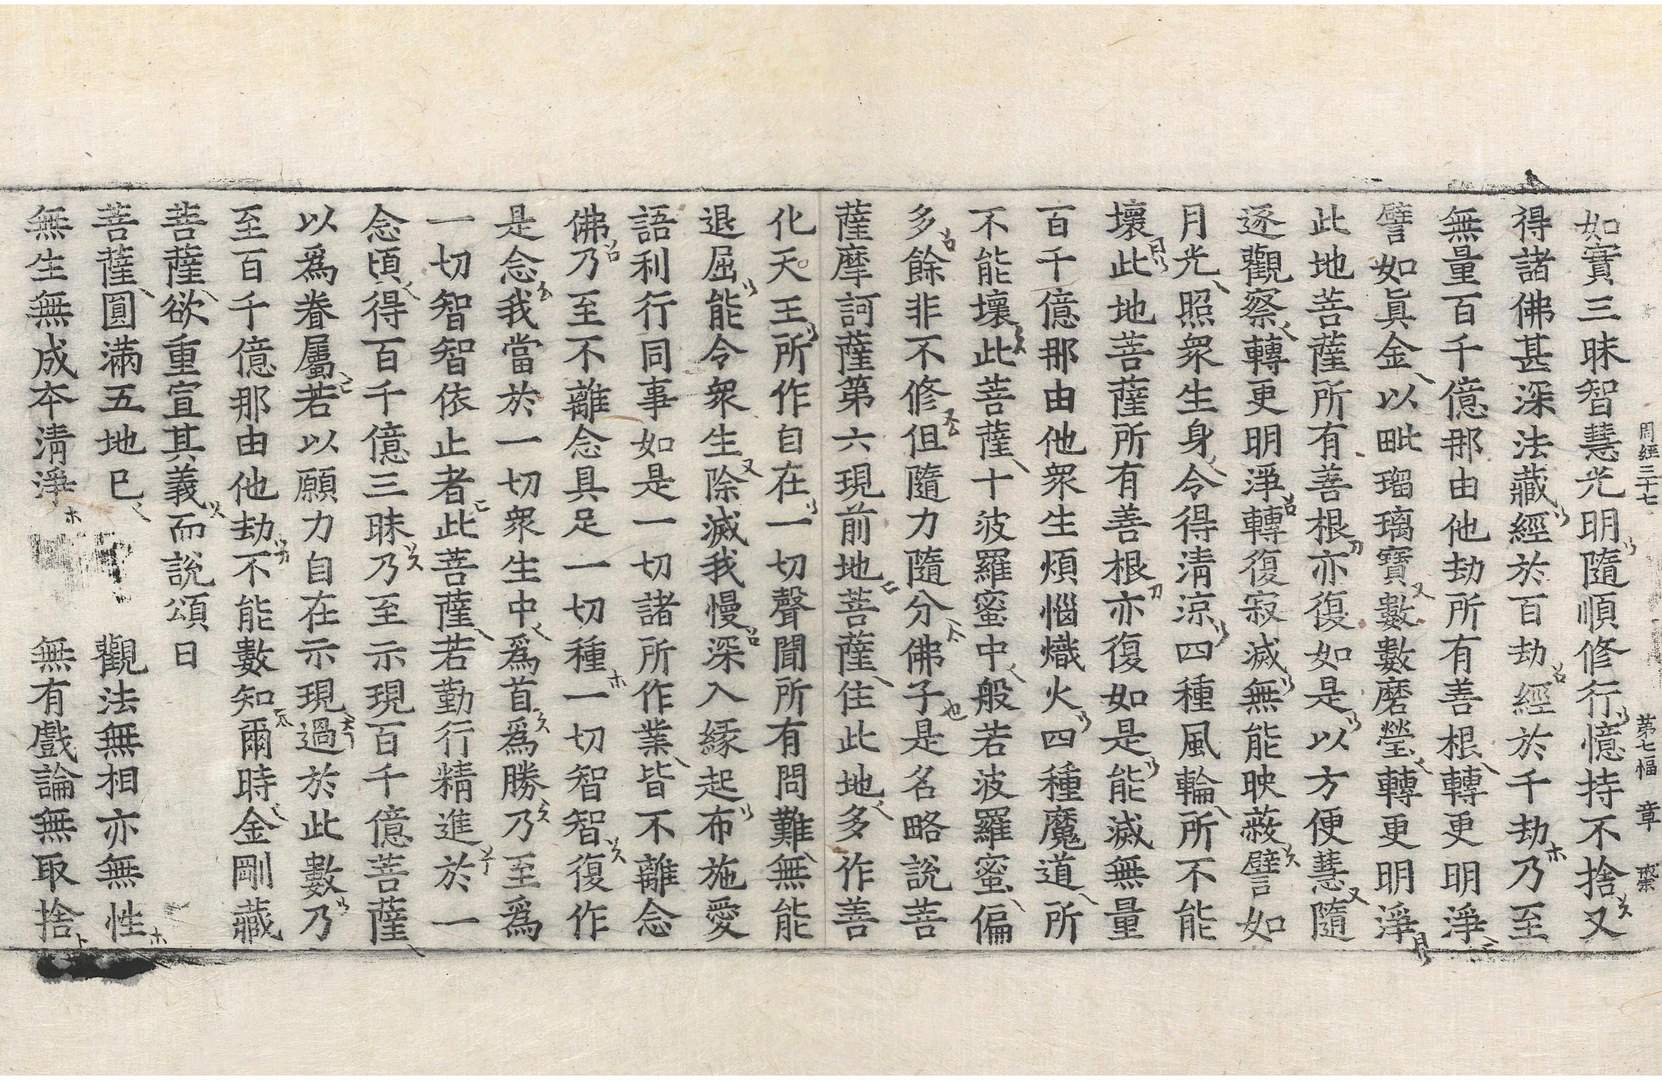 周經三十七 第七幅 章
如實三昧智慧光明隨順修行憶持不捨又
得諸佛甚深法藏經於百劫經於千劫乃至
無量百千億那由他劫所有善根轉更明淨
譬如眞金以毗瑠璃寶數數磨瑩轉更明淨
此地菩薩所有善根亦復如是以方便慧隨
逐觀察轉更明淨轉復寂滅無能映蔽譬如
月光照衆生身令得淸涼四種風輪所不能
壞此地菩薩所有善根亦復如是能滅無量
百千億那由他衆生煩惱熾火四種魔道所
不能壞此菩薩十波羅蜜中般若波羅蜜偏
多餘非不修但隨力隨分佛子是名略說菩
薩摩訶薩第六現前地菩薩住此地多作善
化天王所作自在一切聲聞所有問難無能
退屈能令衆生除滅我慢深入緣起布施愛
語利行同事如是一切諸所作業皆不離念
佛乃至不離念具足一切種一切智智復作
是念我當於一切衆生中爲首爲勝乃至爲
一切智智依止者此菩薩若勤行精進於一
念頃得百千億三昧乃至示現百千億菩薩
以爲眷屬若以願力自在示現過於此數乃
至百千億那由他劫不能數知爾時金剛藏
菩薩欲重宣其義而說頌曰
菩薩圓滿五地已 觀法無相亦無性
無生無成本淸淨 無有戲論無取捨